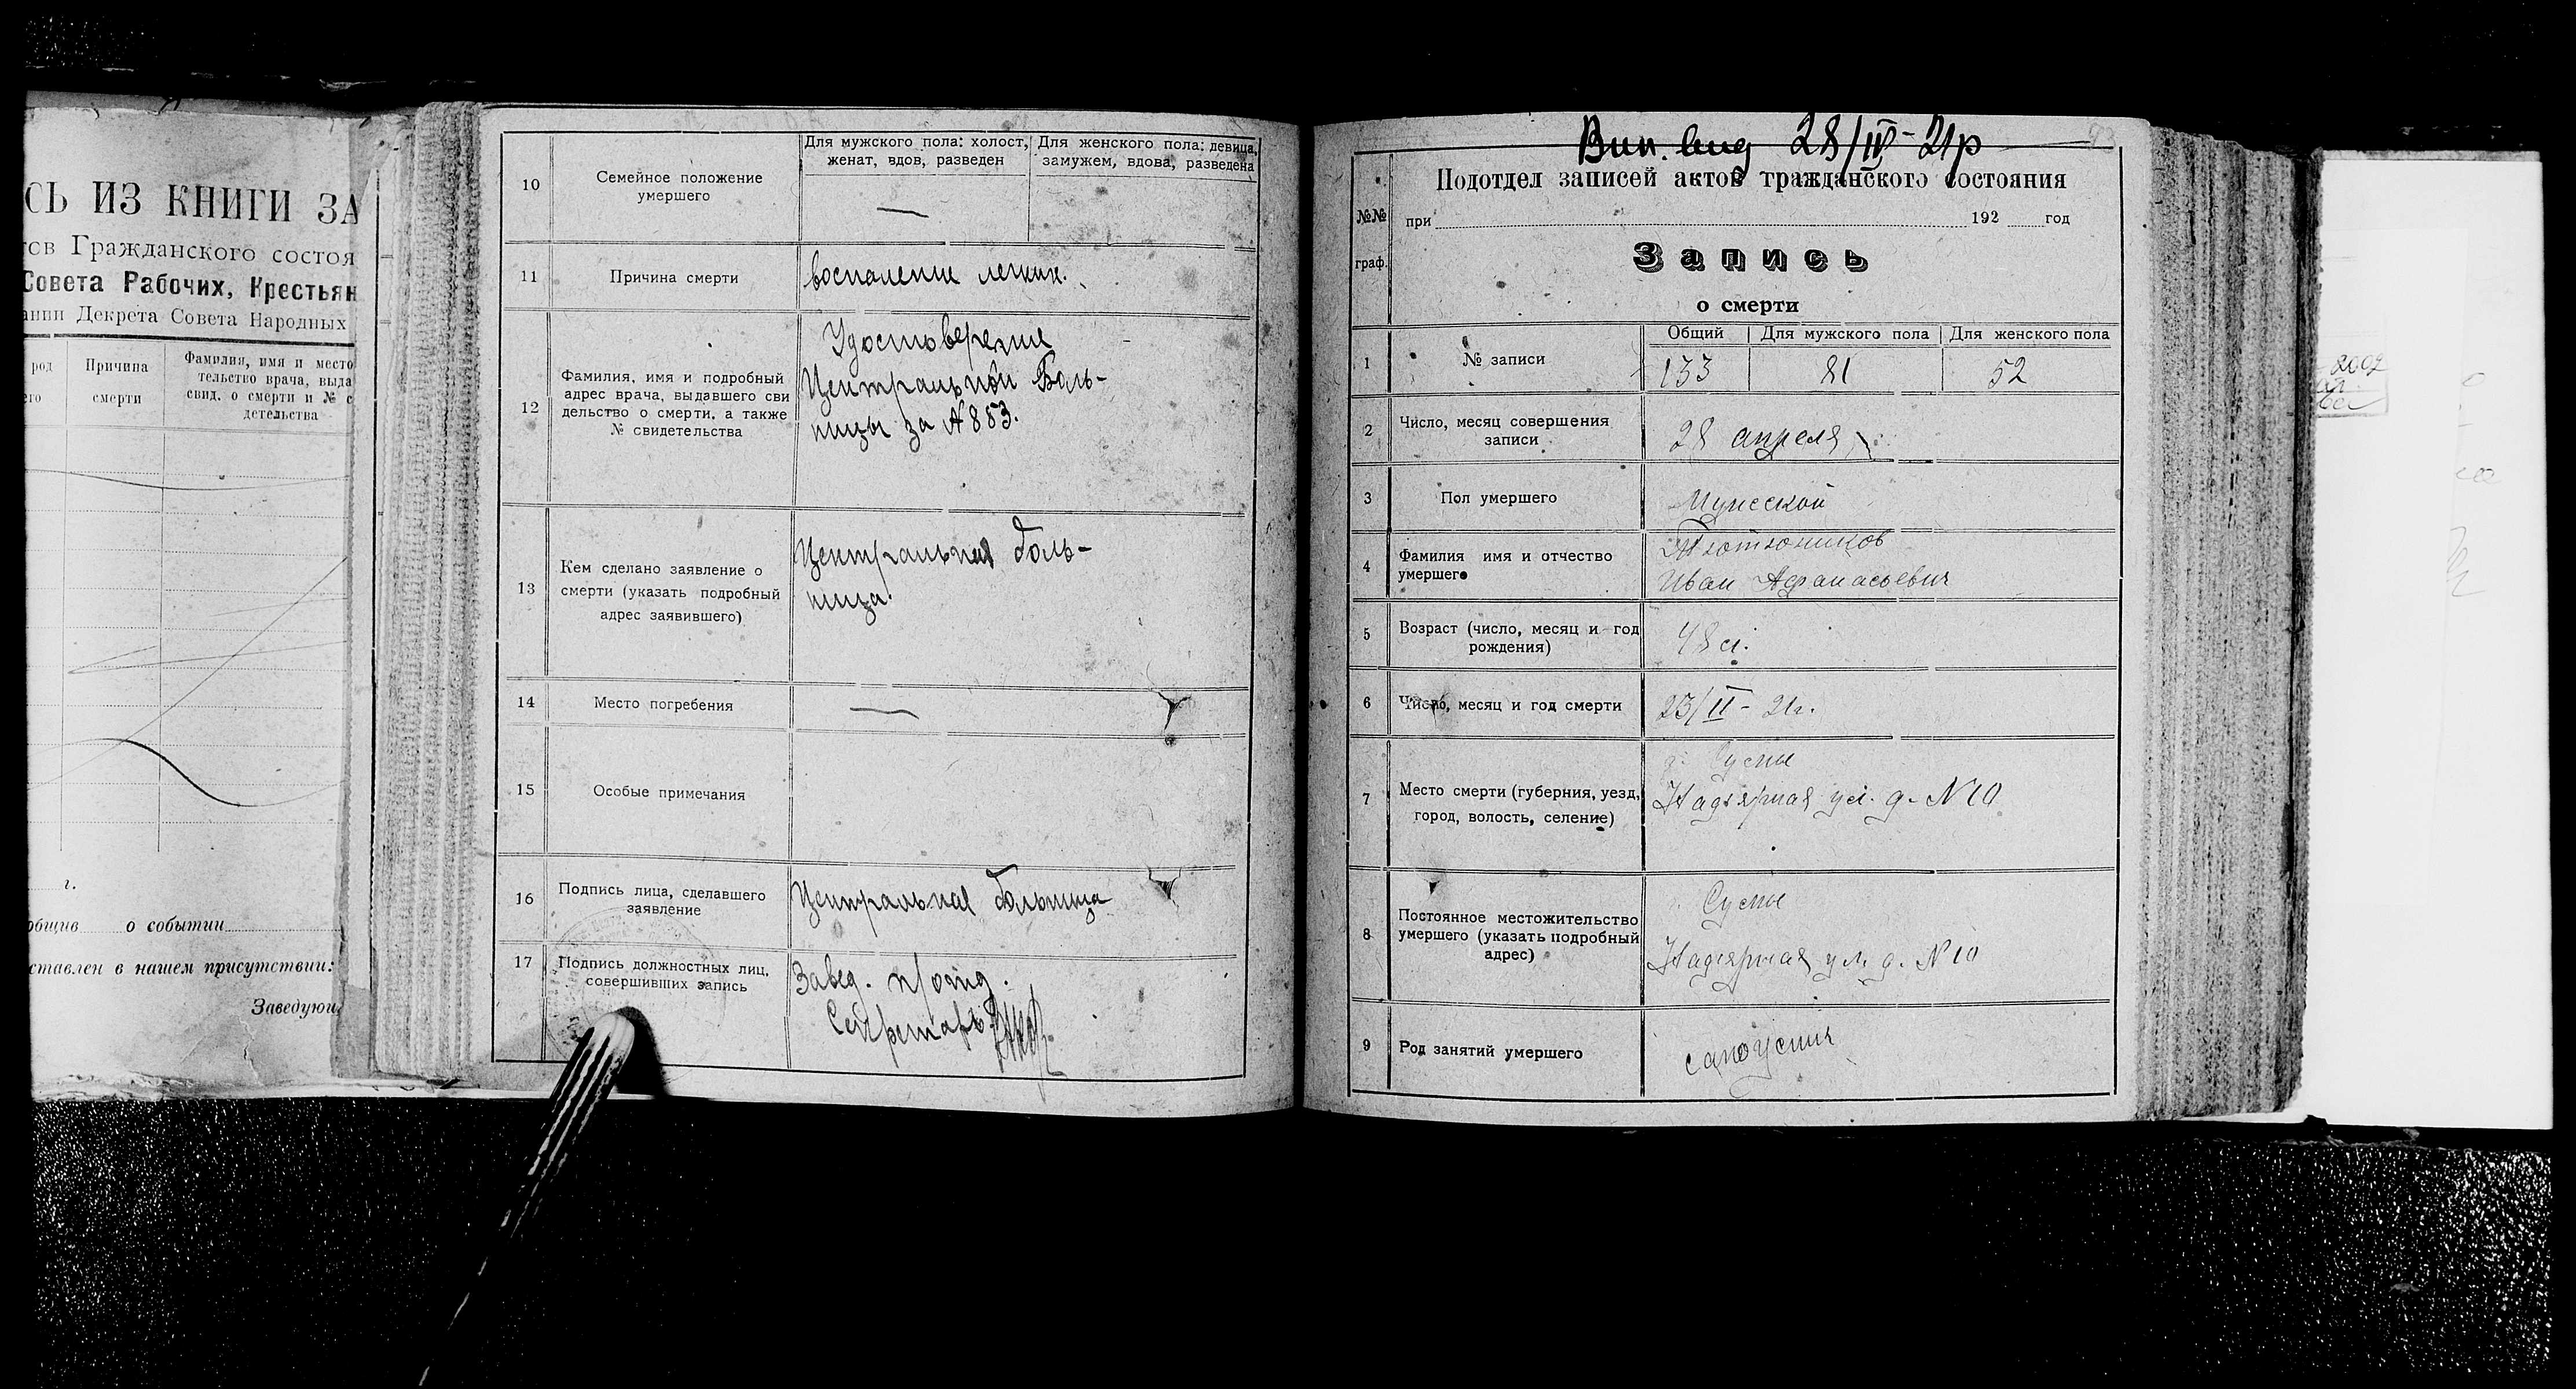 СЬ ИЗ КНИГИ ЗА
тов Гражданского состоя
Совета Рабочих, Крестьян
ании Декрета Совета Народных
род
его
Причина
смерти
Фамилия, имя и место
тельство врача, выда
свид. о смерти и № с
детельства
г.
общив о событии
ставлен в нашем присутствии:
Заведующ
10
Семейное положение
умершего
Для мужского пола: холост,
женат, вдов, разведен
Для женского пола: девица,
замужем, вдова, разведена
—
11
Причина смерти
воспаление легких.
12
Фамилия, имя и подробный
адрес врача, выдавшего сви
дельство о смерти, а также
№ свидетельства
Удостоверение
Центральной Боль-
ницы за № 883.
13
Кем сделано заявление о
смерти (указать подробный
адрес заявившего)
Центральная боль-
ница.
14
Место погребения
—
15
Особые примечания
16
Подпись лица, сделавшего
заявление
Центральная больница
17
Подпись должностных лиц,
совершивших запись
Завед. п/отд.
Секретарь
Вип. вид 28/IV-21р
Подотдел записей актов гражданского состояния
№№
граф.
при 192 год
Запись
о смерти
1
№ записи
Общий
Для мужского пола
Для женского пола
133
81
52
2
Число, месяц совершения
записи
28 апреля
3
Пол умершего
Мужской
4
Фамилия имя и отчество
умершего
Тютюников
Иван Афанасьевич
5
Возраст (число, месяц и год
рождения)
48 л.
6
Число, месяц и год смерти
23/II - 21г.
7
Место смерти (губерния, уезд,
город, волость, селение)
г. Сумы
Надярная ул. д. N 10
8
Постоянное местожительство
умершего (указать подробный
адрес)
Сумы
Надярная ул. д. N 10
9
Род занятий умершего
сапожник
2002